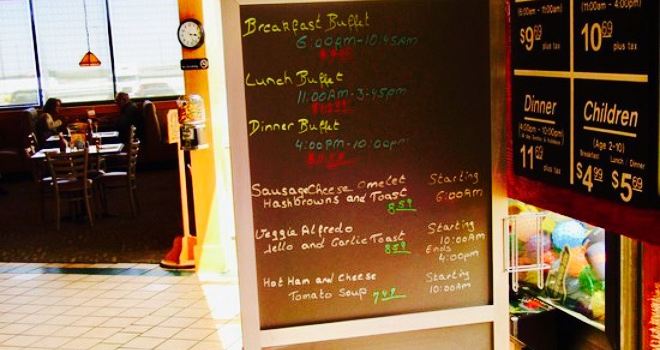 Breakfast Buffet
6:00am-10:45am
Lunch Buffet
11:00Am-3:45pm
Dinner Buffet
4:00pm-10:00pm
Sausage Cheese Omelet Starting
Hashbrowns and Toast 8.59 6:00Am
Veggie Alfredo Starting
Jello and Garlic Toast 8.59 10:00Am
Ends
4:00pm
Hot Ham and Cheese Starting
Tomato Soup 7.49 10:00Am
(6:00am - 11:00am)
$9 69
plus tax
(11:00am - 4:00pm)
10 69
plus tax
Dinner
11 69
plus tax
Children
(Age 2-10)
Breakfast
$4 99
Lunch / Dinner
$5 69